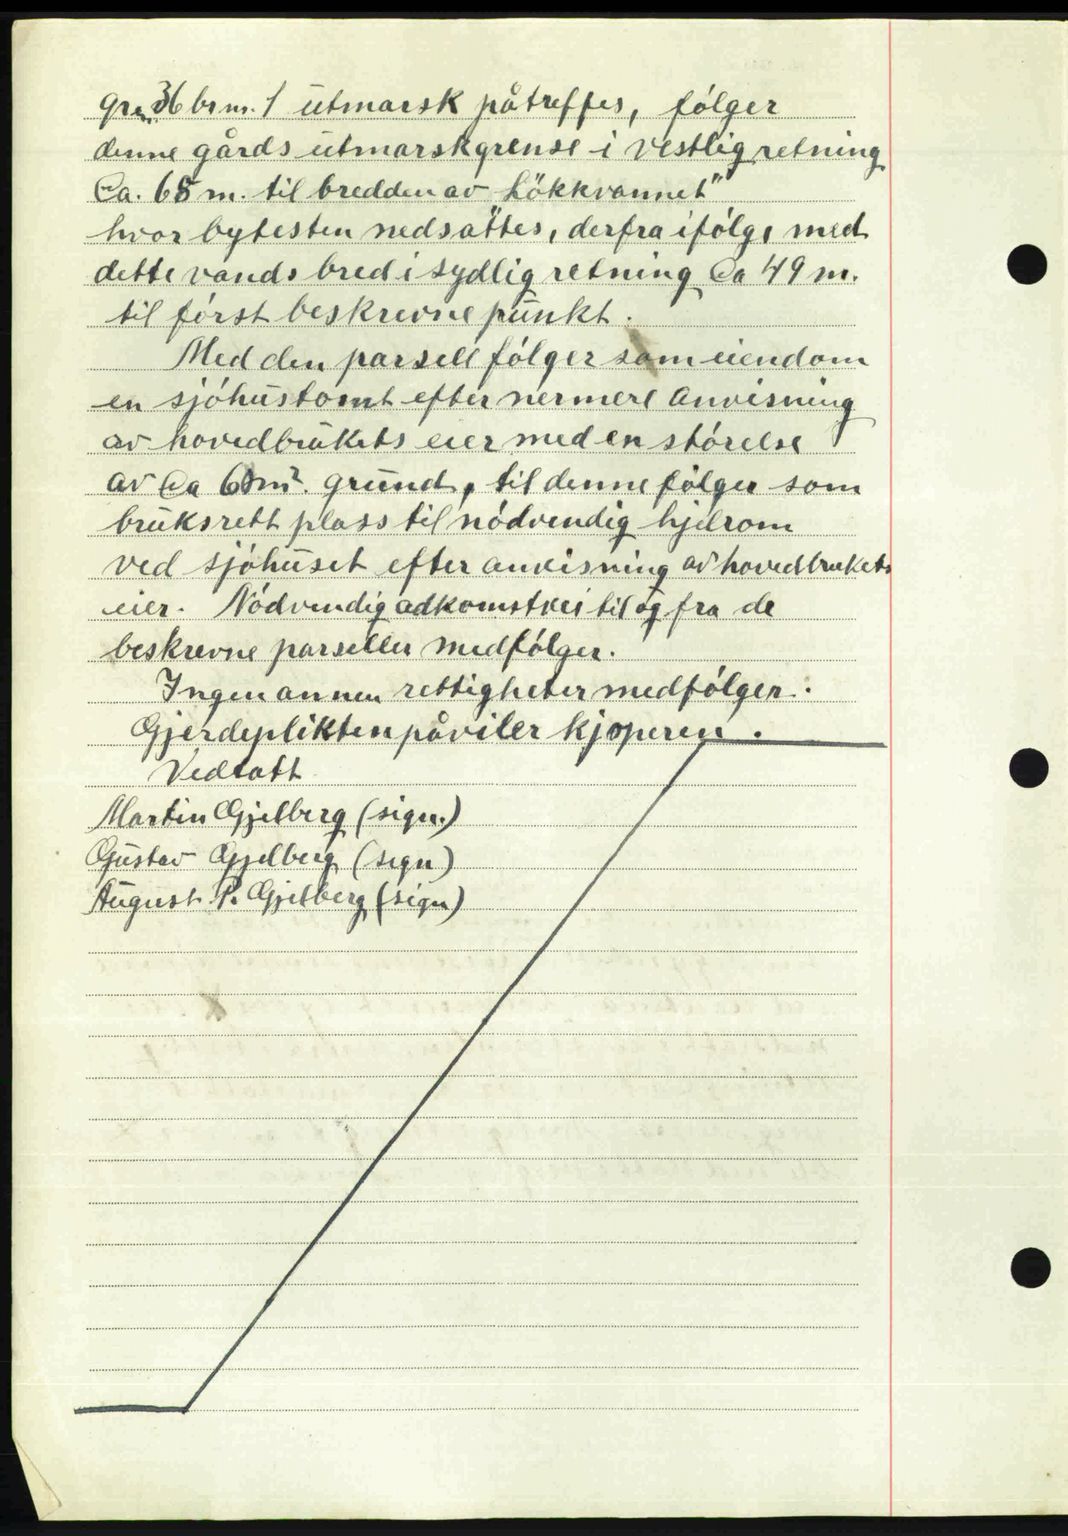 grn. 36 brnr. 1 utmarsk påtreffes, følger
denne gårds utmarskgrense i vestlig retning
Ca. 68 m. til bredden av "Løkkvannet"
hvor bytesten nedsattes, derfra i følge med
dette vands bred i sydlig retning Ca 49 m.
til først beskrevne punkt.
Med den parsell følger som eiendom
en sjøhustomt efter nermere anvisning
av hovedbrukets eier med en størelse
av Ca 60 m². grund, til denne følger som
bruksrett plass til nødvendig hjelrom
ved sjøhuset efter anvisning av hovedbrukets
eier. Nødvendig adkomstvei til og fra de
beskrevne parseller medfølger.
Ingen annen rettigheter medfølger.
Gjerdeplikten påviler kjøperen.
Vedtatt
Martin Gjelberg (sign.)
Gustav Gjelberg (sign)
August P. Gjelberg (sign)